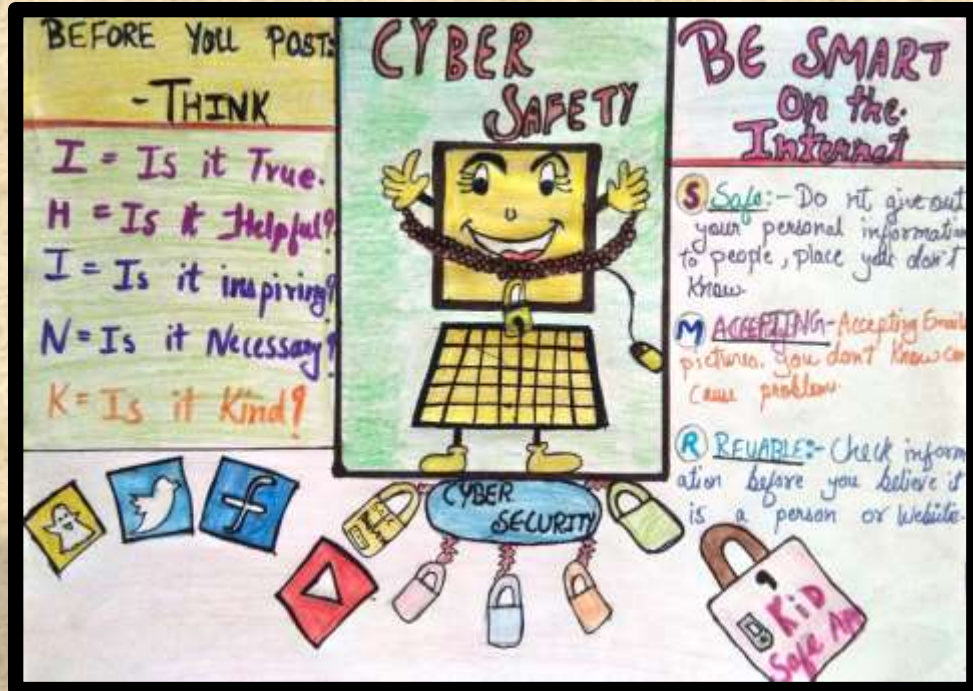 BEFORE YOU POST:
- THINK
I = Is it True.
H = Is It Helpful?
I = Is it inspiring?
N = Is it Necessary?
K = Is it Kind?
CYBER
SAFETY
CYBER
SECURITY
BE SMART
On the
Internet
S Safe:- Do nt give out
your personal informatio
to people, place you don't
know
M ACCEPTING- Accepting Email
pictures. you don't know can
cause problem.
R RELIABLE:- Check inform
ation before you believe it
is a person or Website.
Kid
Safe App